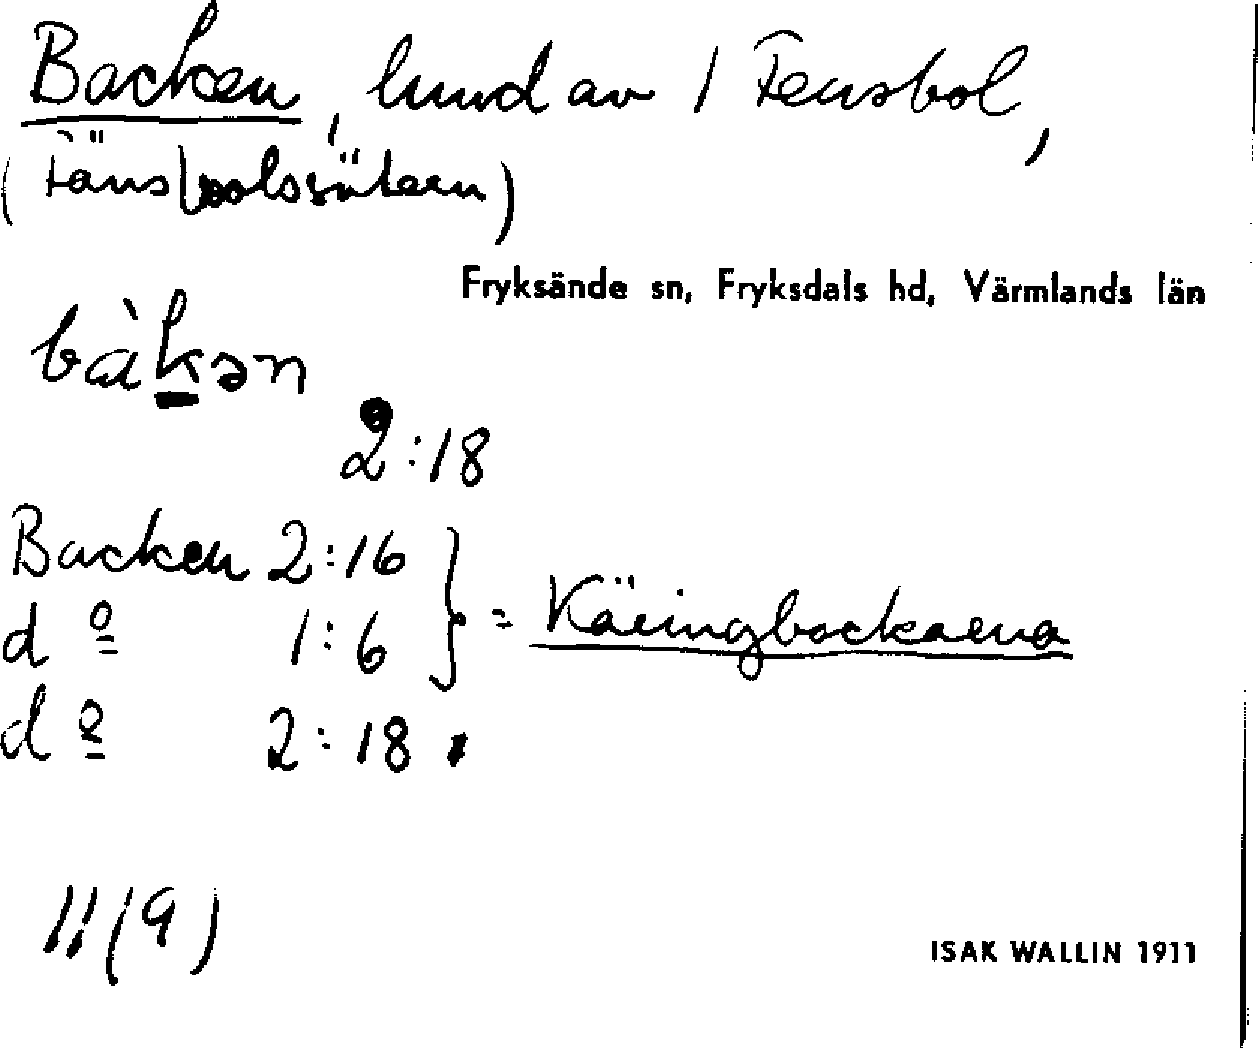 Backen, hmd av 1 Fensbol,
(Fänsbolssätern)
Fryksände sn, Fryksdals hd, Värmlands län
bàkən
2:18
Backen 2:16
dº 1:6 } = Käringbackarna
dº 2:18
11(9)
ISAK WALLIN 1911